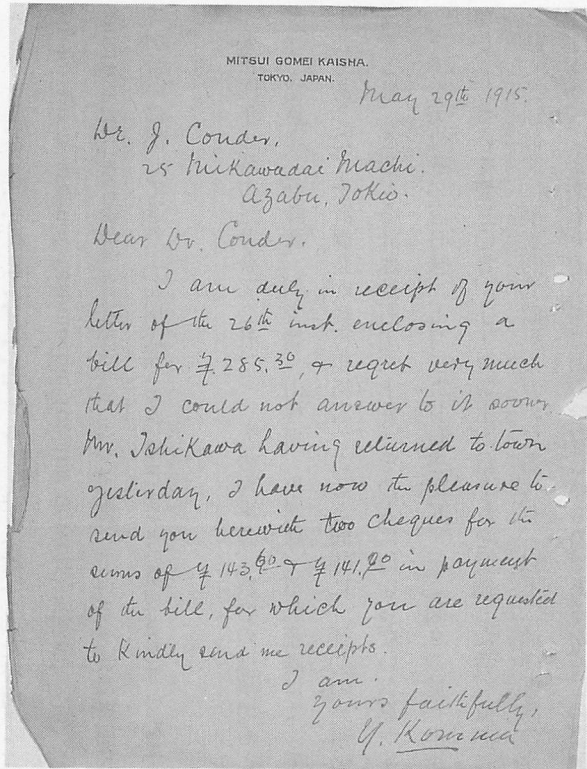 MITSUI GOMEI KAISHA.
TOKYO, JAPAN.
May 29th 1915.
Dr. J. Conder,
25 Mikawadai Machi.
Azabu, Tokio.
Dear Dr. Conder.
I am duly in receipt of your
letter of the 26th inst. enclosing a
bill for ¥.285.30, & regret very much
that I could not answer to it sooner
Mr. Ishikawa having returned to town
yesterday, I have now the pleasure to
send you herewith two cheques for the
sums of ¥ 143.60 & ¥ 141.70 in payment
of the bill, for which you are requested
to kindly send me receipts.
I am.
yours faithfully,
Y.